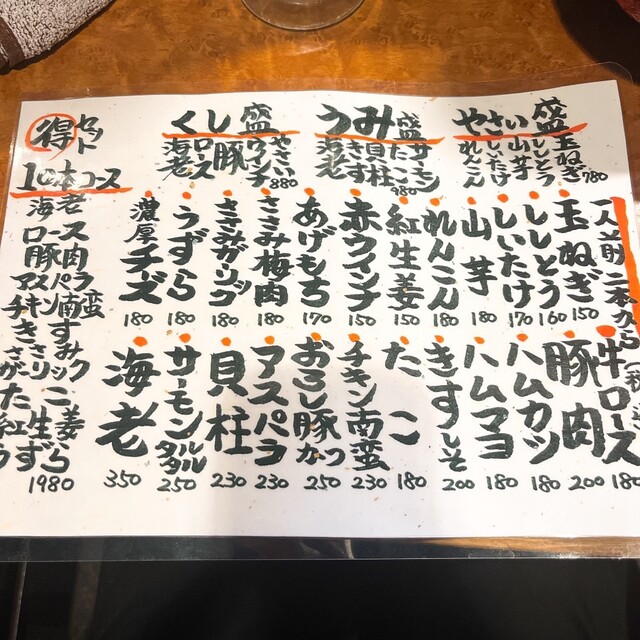 やさい盛
玉ねぎ
ししとう
山芋
しいたけ
れんこん
780
うみ盛
サーモン
たこ
貝柱
きす
海老
980
くし盛
やさい
ウインナ
豚
ロース
海老
880
得セット
10本コース
海老
ロース
豚肉
アスパラ
チキン南蛮
きす
ささみガリック
たこ
紅生姜
うずら
1980
一人前二本から
玉ねぎ 150
ししとう 160
しいたけ 170
山芋 180
れんこん 180
紅生姜 150
赤ウインナ 150
あげもち 170
ささみ梅肉 180
ささみガリック 180
うずら 180
濃厚チーズ 180
牛ロース 180
豚肉 200
ハムカツ 180
ハムマヨ 180
きすしそ 200
たこ 180
チキン南蛮 230
おろし豚かつ 250
アスパラ 230
貝柱 230
サーモンタルタル 250
海老 350